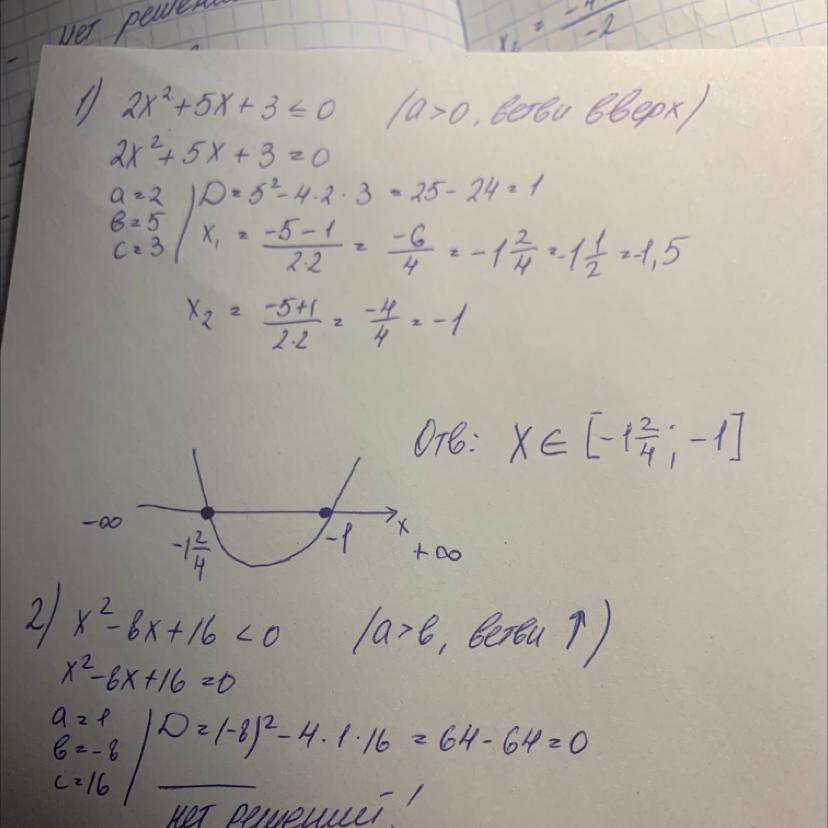 нет решени
x₂ = -4 / -2
1) 2x² + 5x + 3 ≤ 0 (a>0, ветви вверх)
2x² + 5x + 3 = 0
a = 2 | D = 5² - 4·2·3 = 25 - 24 = 1
в = 5
c = 3 | x₁ = (-5-1)/(2·2) = -6/4 = -1 2/4 = -1 1/2 = -1,5
x₂ = (-5+1)/(2·2) = -4/4 = -1
Отв: x ∈ [-1 2/4; -1]
-∞ -1 2/4 -1 x +∞
2) x² - 8x + 16 < 0 (a>в, ветви ↑)
x² - 8x + 16 = 0
a = 1 | D = (-8)² - 4·1·16 = 64 - 64 = 0
в = -8
c = 16
нет решений!